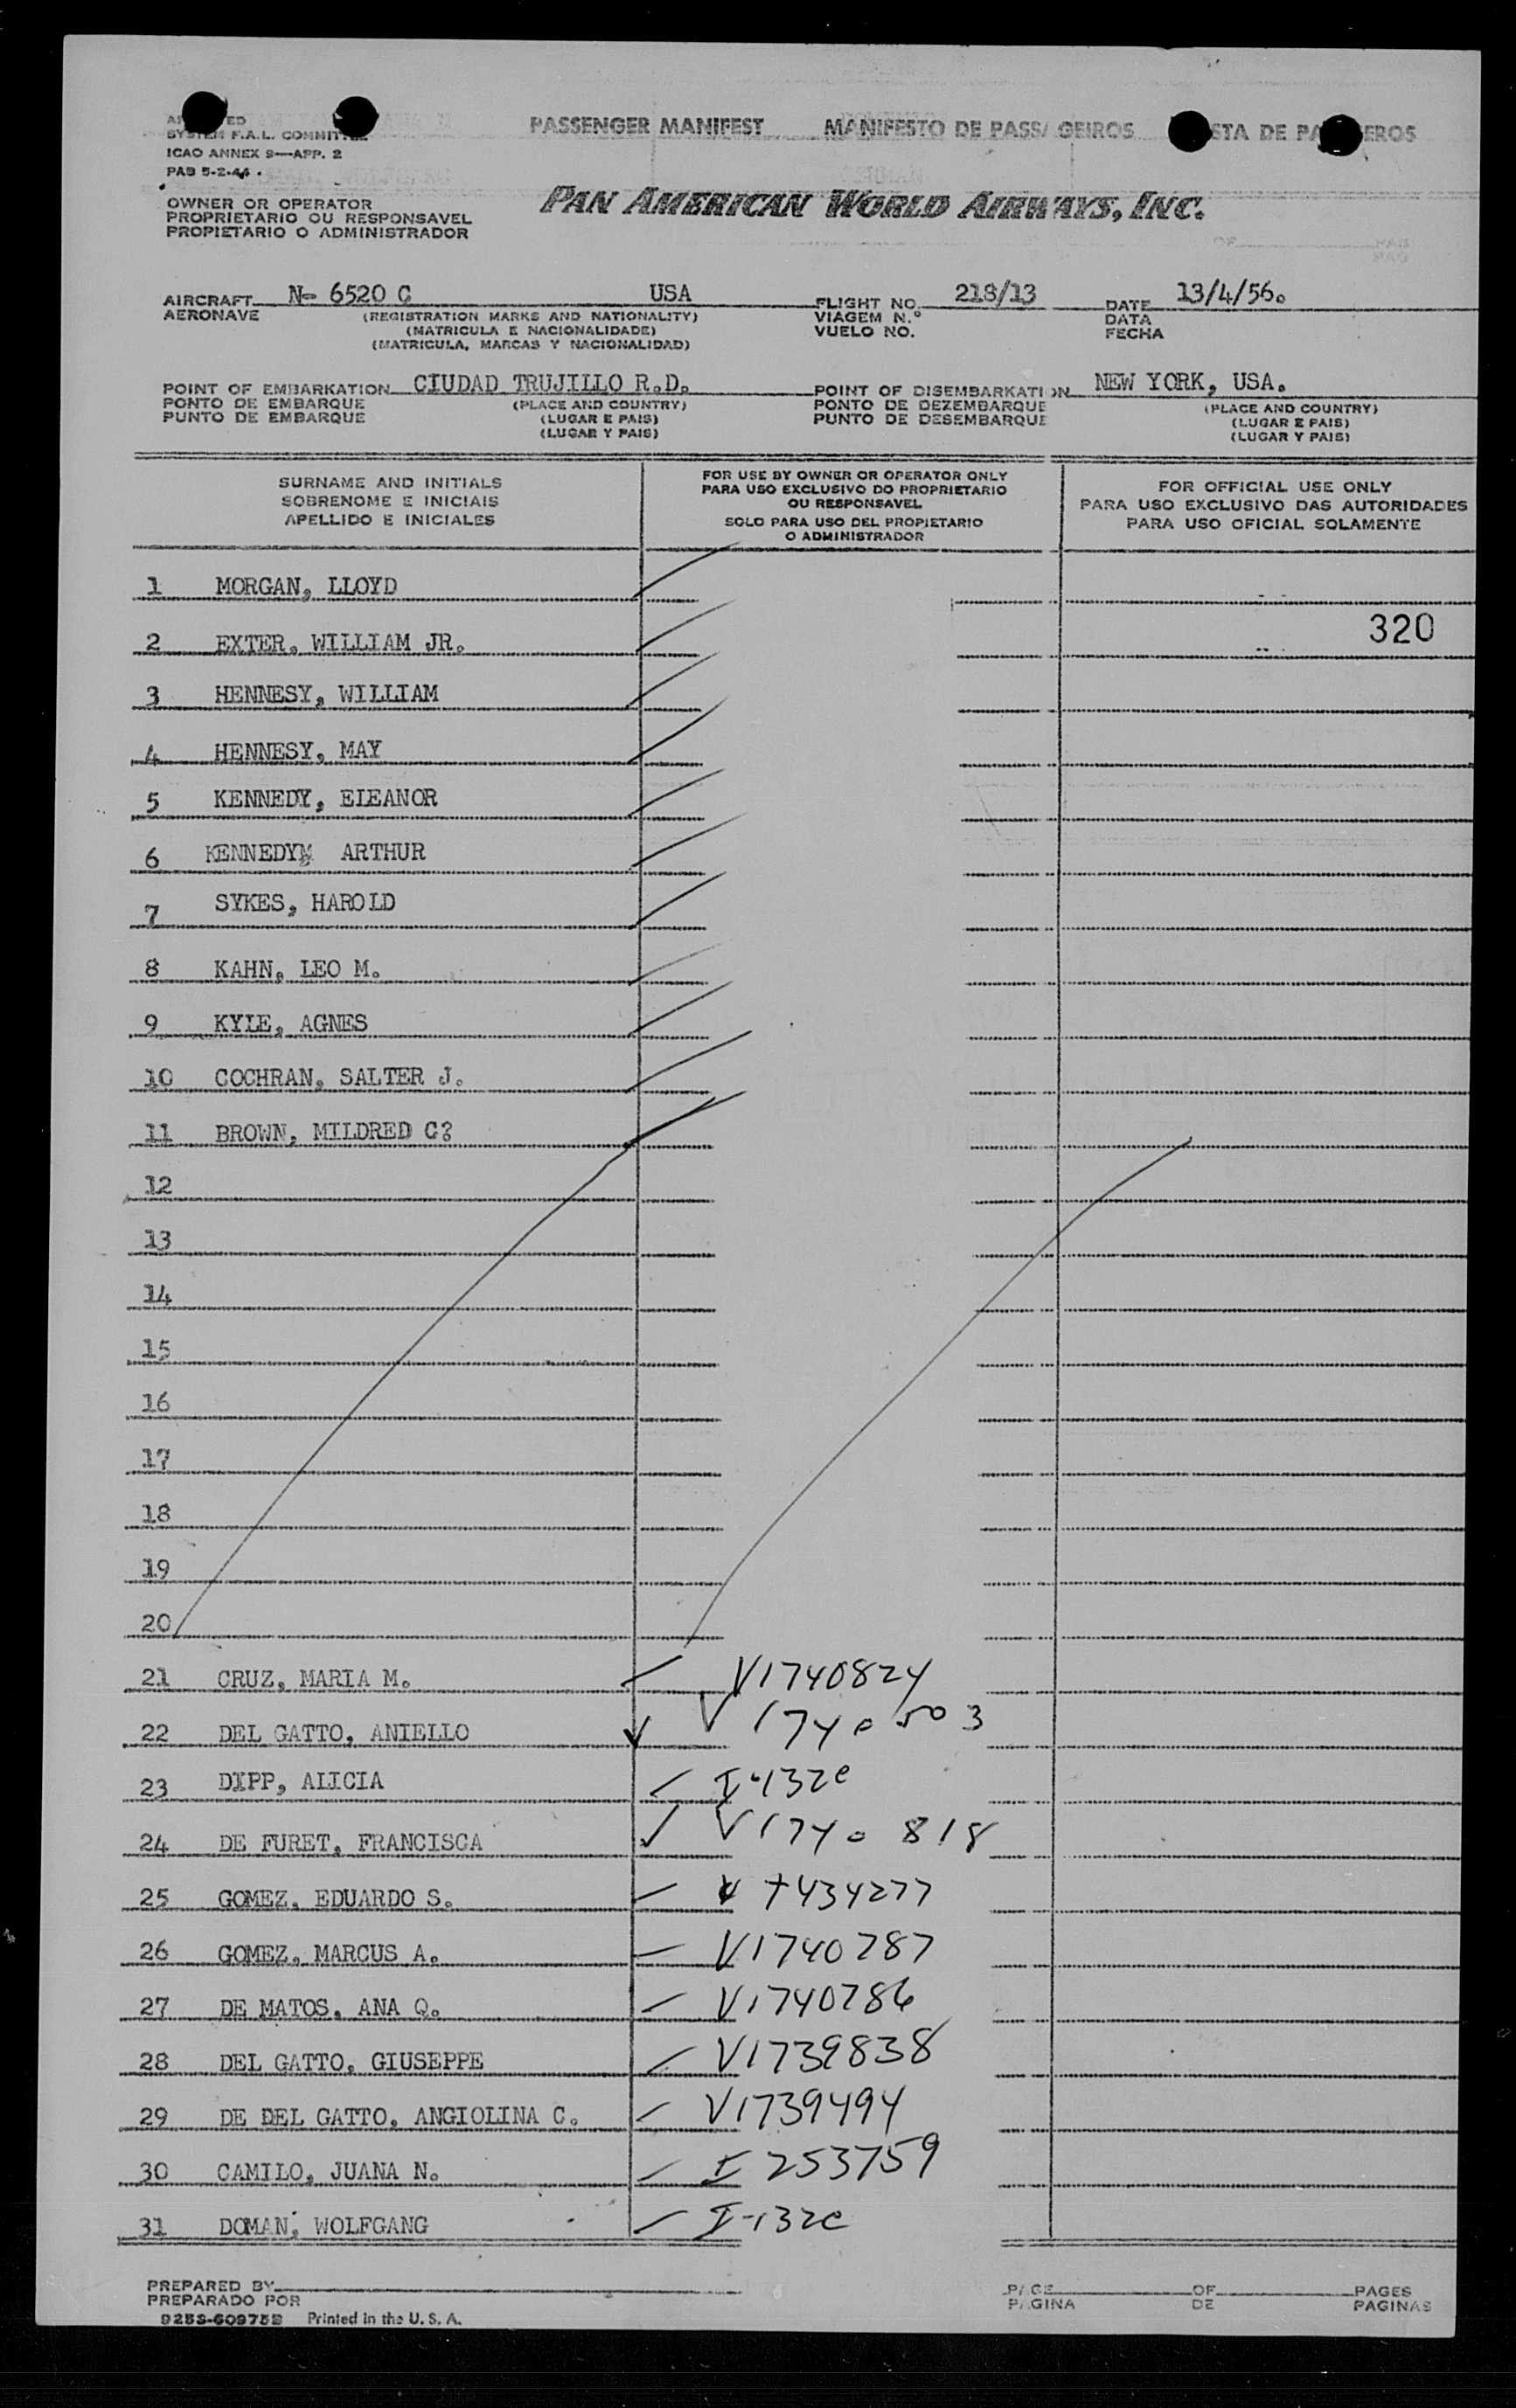 SYSTEM F.A.L. COMMITTEE
ICAO ANNEX 9—APP. 2
PAB 5-2-44
PASSENGER MANIFEST MANIFESTO DE PASSAGEIROS LISTA DE PASAJEROS
OWNER OR OPERATOR
PROPRIETARIO OU RESPONSAVEL
PROPIETARIO O ADMINISTRADOR
PAN AMERICAN WORLD AIRWAYS, INC.
AIRCRAFT N- 6520 C USA FLIGHT NO. 218/13 DATE 13/4/56.
AERONAVE (REGISTRATION MARKS AND NATIONALITY) VIAGEM N.º DATA
(MATRICULA E NACIONALIDADE) VUELO NO. FECHA
(MATRICULA, MARCAS Y NACIONALIDAD)
POINT OF EMBARKATION CIUDAD TRUJILLO R.D. POINT OF DISEMBARKATION NEW YORK, USA.
PONTO DE EMBARQUE (PLACE AND COUNTRY) PONTO DE DEZEMBARQUE (PLACE AND COUNTRY)
PUNTO DE EMBARQUE (LUGAR E PAIS) PUNTO DE DESEMBARQUE (LUGAR E PAIS)
(LUGAR Y PAIS) (LUGAR Y PAIS)
SURNAME AND INITIALS
SOBRENOME E INICIAIS
APELLIDO E INICIALES
FOR USE BY OWNER OR OPERATOR ONLY
PARA USO EXCLUSIVO DO PROPRIETARIO
OU RESPONSAVEL
SOLO PARA USO DEL PROPIETARIO
O ADMINISTRADOR
FOR OFFICIAL USE ONLY
PARA USO EXCLUSIVO DAS AUTORIDADES
PARA USO OFICIAL SOLAMENTE
1 MORGAN, LLOYD
320
2 EXTER, WILLIAM JR.
3 HENNESY, WILLIAM
4 HENNESY, MAY
5 KENNEDY, ELEANOR
6 KENNEDYM ARTHUR
7 SYKES, HAROLD
8 KAHN, LEO M.
9 KYLE, AGNES
10 COCHRAN, SALTER J.
11 BROWN, MILDRED C?
12
13
14
15
16
17
18
19
20
21 CRUZ, MARIA M. V1740824
22 DEL GATTO, ANIELLO V 1740503
23 DIPP, ALICIA I-132c
24 DE FURET, FRANCISCA V1740818
25 GOMEZ, EDUARDO S. 434277
26 GOMEZ, MARCUS A. V1740787
27 DE MATOS, ANA Q. V1740786
28 DEL GATTO, GIUSEPPE V1739838
29 DE DEL GATTO, ANGIOLINA C. V1739494
30 CAMILO, JUANA N. I 253759
31 DOMAN, WOLFGANG I-132c
PREPARED BY PAGE OF PAGES
PREPARADO POR PAGINA DE PAGINAS
Printed in the U. S. A.